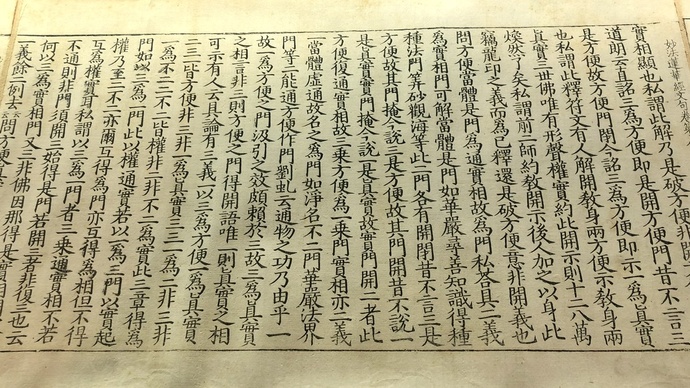 妙法蓮華經
實相顯也私謂此解乃是破方便非開
道朗云直詺三爲方便即是開方便門昔不言三
是方便故方便門閇今詺三爲方便即示一爲真實
也私謂此釋符文有人解開教身兩方便示教身兩
真實三世佛唯有形聲權實約此開示則十二八萬
煥然了矣私謂前二師約教開示後人加之以身此
竊龍印之義而爲己釋還是破方便意非開義也
問方便當體是門爲通實相故爲門私荅具二義
爲實相門可解當體是門如華嚴云尋善知識得種
種法門筭砂觀海等此二門各有開閉昔不言三是
方便故其門掩今說三是方便故其門開昔不說一
是真實實門掩今說一是真實故實門開二者此
方便復通實相故三乘方便爲一乘門實相亦二義
一當體虛通故名之爲門如淨名不二門華嚴法界
門等二能通方便作門劉虬云通物之功乃由乎一
故一爲方便之門汲引之效頗賴於三故三爲真實
之相言非三則方便之門得開語唯一則真實之相
可示有人云具論有三義一以三爲方便一爲真實
二三一皆方便非三非一爲真實三三一爲二非三非
一爲不二二不二皆權非二非不二爲實此三章得爲
門如以三爲一門此以權通實若以一爲三門以實起
權乃至二不二亦爾互得爲門亦互得爲相但不得
互爲權實耳私謂以三爲一門者三乘通實相不若
不通則非門須開三始得是門若開三者非復三也云
何以三爲實相門又三非佛因那得是實相門
義餘二例去云云問方便真實